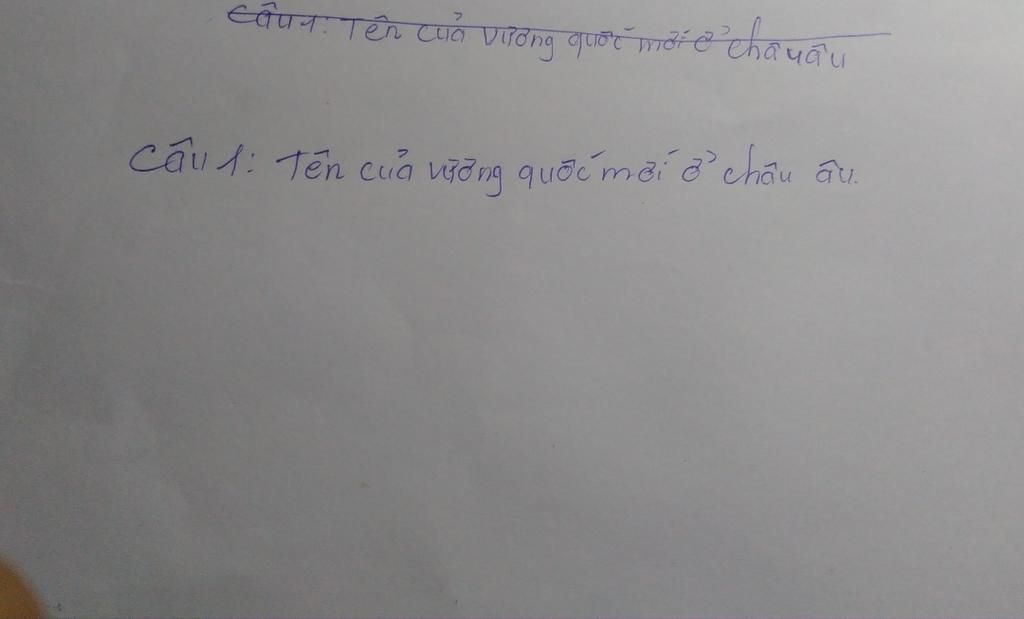 Câu 1: Tên của vương quốc mới ở châu âu
Câu 1: Tên của vương quốc mới ở châu âu.